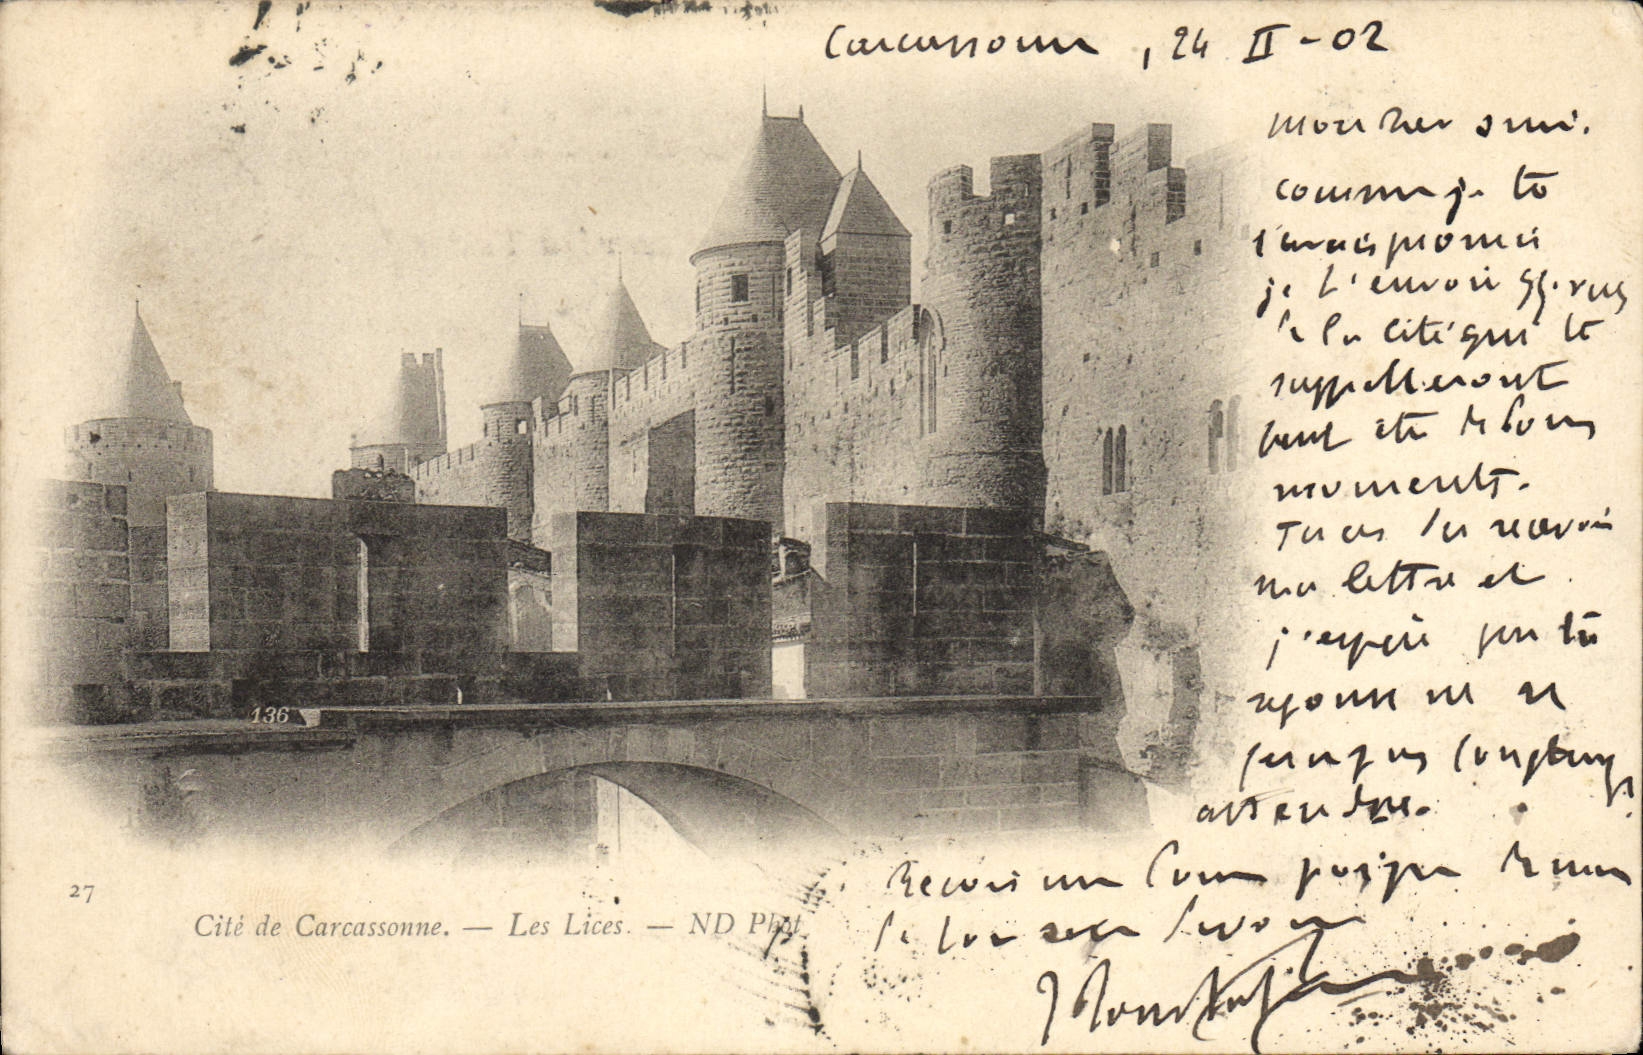 Carcassonne, 24 II - 02
Mon cher ami.
comme je te
l'avais promis
je t'envoie qq. vues
de la cité qui te
rappelleront
peut etre de bons
moments.
Tu as du recevoir
ma lettre et
j'espère que tu
réponse ne se
fera pas longtemps
attendre.
Reçois une bonne poignée de main
de ton
136
27
Cité de Carcassonne. — Les Lices. — ND Phot